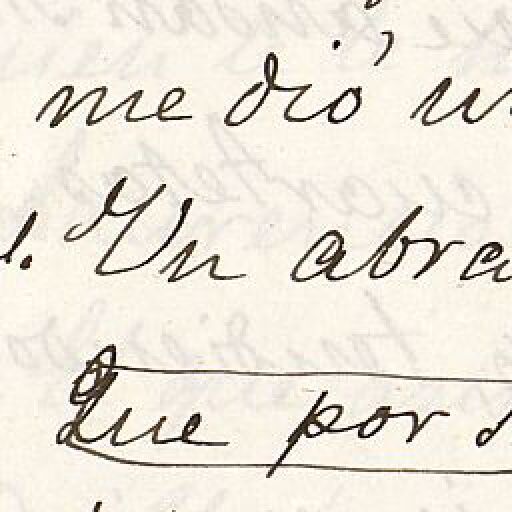 me dió
Un abra
Que por